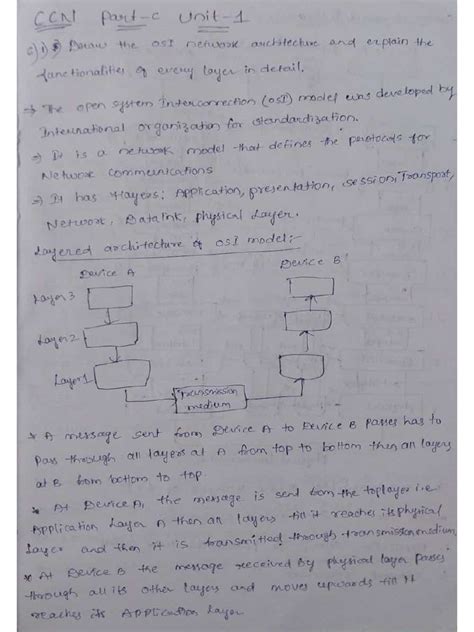 CCN Part-C Unit-1
c) i) Draw the OSI network architecture and explain the
functionalities of every layer in detail.
→ The open system Interconnection (OSI) model was developed by
International organization for standardization.
⇒ It is a network model that defines the protocols for
Network communications
⇒ It has 7 layers; Application, presentation, session, Transport,
Network, Datalink, physical Layer.
Layered architecture of OSI model:-
Device A
Device B
Layer 3
Layer 2
Layer 1
Transmission
medium
* A message sent from Device A to Device B passes has to
pass through all layers at A from top to bottom then all layers
at B from bottom to top.
* At Device A, the message is sent from the top layer i.e
Application Layer A then all layers till it reaches its physical
layer and then it is transmitted through transmission medium
* At Device B the message received by physical layer passes
through all its other layers and moves upwards till it
reaches its Application layer